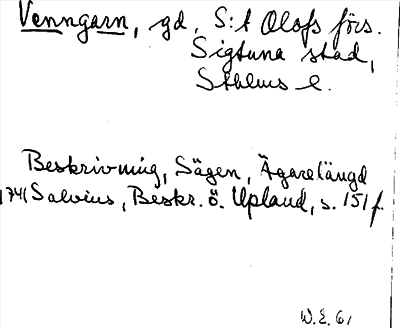 Venngarn, gd, S:t Olofs förs.
Sigtuna stad,
Sthlms l.
Beskrivning, Sägen, Ägarelängd
1741 Salvius, Beskr. ö. Upland, s. 151 f.
W.E. 61